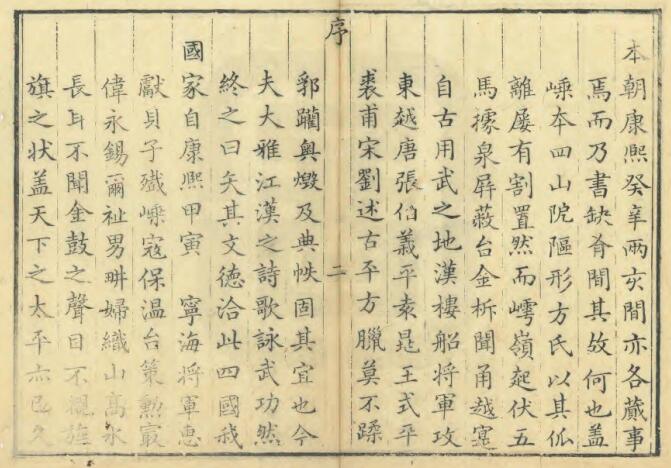 本朝康熙癸辛兩亥間亦各蕆事
焉而乃書缺有間其故何也盖
嵊本四山阨形方氏以其
離屡有割置然而嶀嶺起伏五
馬據泉屏蔽台金柝聞甬越寔
自古用武之地漢樓船将軍攻
東越唐張伯義平袁晁王式平
裘甫宋劉述古平方臘莫不蹂
序
二
郛躪輿燬及典帙固其宜也今
夫大雅江漢之詩歌詠武功然
終之曰矢其文徳洽此四國我
國家自康熙甲寅　寧海将軍惠
獻貝子殲嵊冦保温台策勲㝡
偉永錫爾祉男畊婦織山髙水
長耳不聞金鼓之聲目不覩旌
旗之状盖天下之太平亦已久